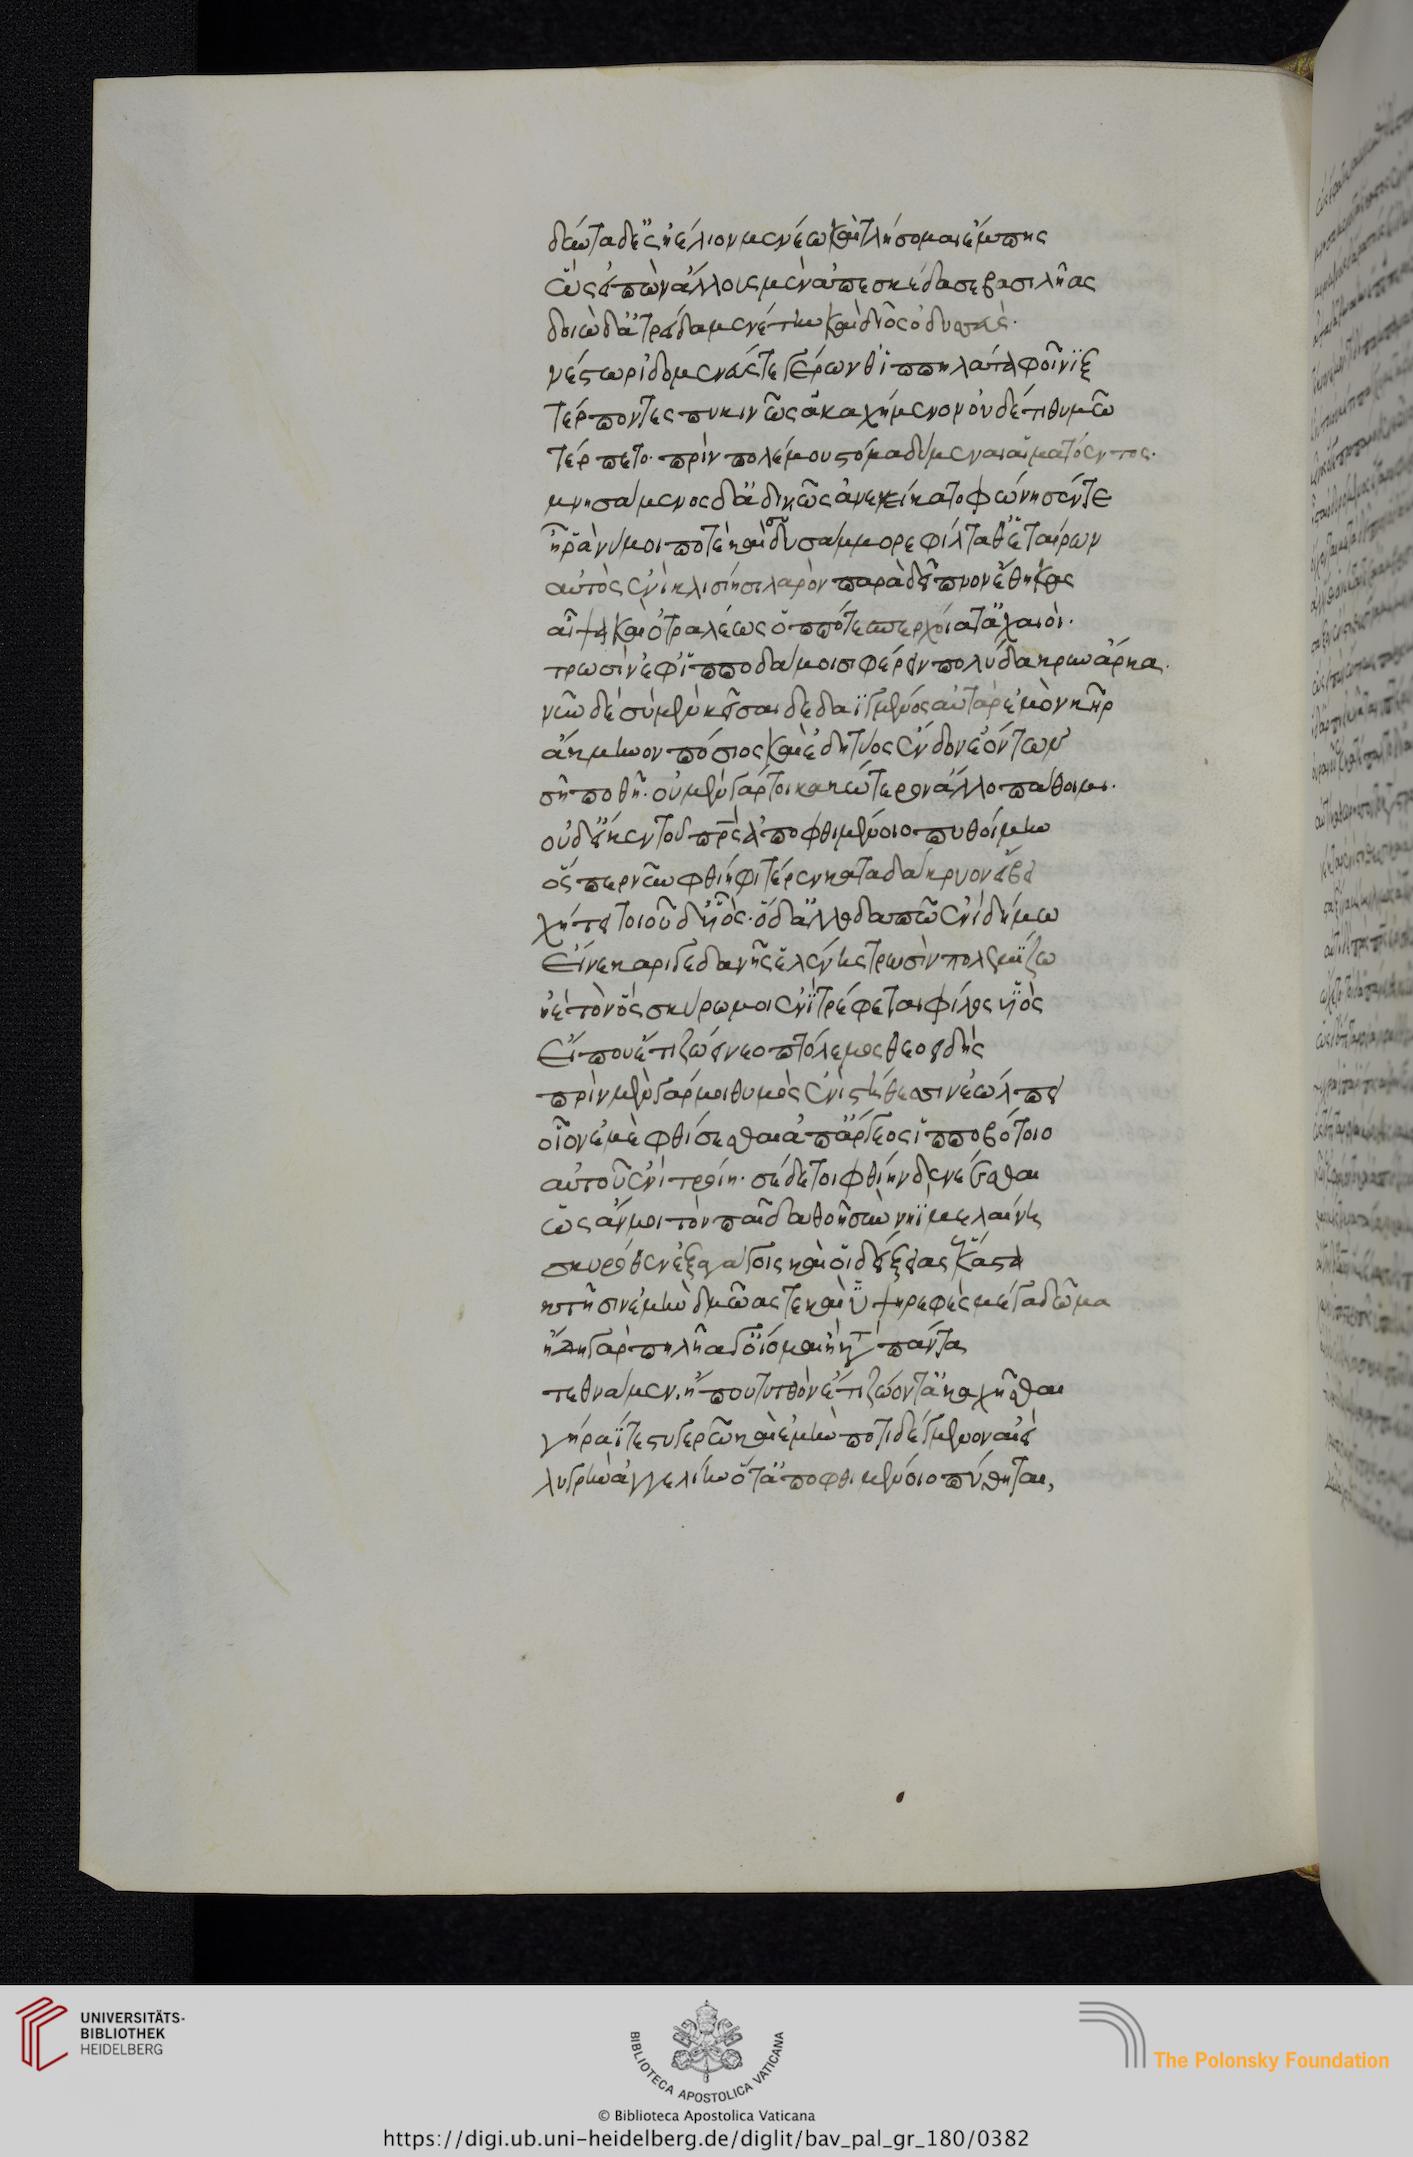 δύντα δ' ἐς ἠέλιον μενέω καὶ τλήσομαι ἔμπης
ὣς εἰπὼν ἄλλους μὲν ἀπεσκέδασε βασιλῆας
δοιὼ δ' ἀτρείδα μενέτην καὶ δῖος ὀδυσσεύς·
νέστωρ ἰδομενεύς τε γέρων θ' ἱππηλάτα φοῖνιξ
τέρποντες πυκινῶς ἀκαχήμενον οὐδέ τι θυμῶ
τέρπετο· πρὶν πολέμου στόμα δύμεναι αἱματόεντος·
μνησάμενος δ' ἁδινῶς ἀνενείκατο φώνησέν τε
ἦ ῥά νύ μοι ποτὲ καὶ σὺ δυσάμμορε φίλταθ' ἑταίρων
αὐτὸς ἐνὶ κλισίησι λαρὸν παρὰ δεῖπνον ἔθηκας
αἶψα καὶ ὀτραλέως ὁππότε σπερχοίατ' ἀχαιοί·
τρωσὶν ἐφ' ἱπποδάμοισι φέρειν πολύδακρυν ἄρηα·
νῦν δὲ σὺ μὲν κεῖσαι δεδαϊγμένος αὐτὰρ ἐμὸν κῆρ
ἄκμηνον πόσιος καὶ ἐδητύος ἔνδον ἐόντων
σῆ ποθῆ· οὐ μὲν γάρ τοι κακώτερον ἄλλο πάθοιμι·
οὐδ' εἴ κεν τοῦ πρς ἀποφθιμένοιο πυθοίμην
ὅς που νῦν φθίηφι τέρεν κατα δάκρυον εἴβει
χήτει τοιοῦδ' υἷος· ὁ δ' ἀλλοδαπῶ ἐνὶ δήμω
εἵνεκα ῥιγεδανῆς ἑλένης τρωσὶν πολεμίζω
ἠὲ τὸν ὃς σκύρω μοι ἔνι τρέφεται φίλος υἱὸς
εἴ που ἔτι ζώει νεοπτόλεμος θεοειδής
πρὶν μὲν γάρ μοι θυμὸς ἐνὶ στήθεσσιν ἐώλπει
οἶον ἐμὲ φθίσεσθαι ἀπ' ἄργεος ἱπποβότοιο
αὐτοῦ ἐνὶ τροίη· σὲ δέ τοι φθίην δὲ νέεσθαι
ὡς ἄν μοι τὸν παῖδα θοῆ σὺν νηῒ μελαίνη
σκυρόθεν ἐξαγάγοις καὶ οἱ δείξειας ἕκαστα
κτῆσιν ἐμὴν δμῶας τε καὶ ὑψηρεφὲς μέγα δῶμα
ἤδη γὰρ πηλῆα γ' ὀΐομαι ἢ κατὰ πάντα
τεθνάμεν· ἤ που τυτθὸν ἔτι ζώοντ' ἀκάχησθαι
γήραΐ τε στυγερῶ καὶ ἐμὴν ποτιδέγμενον αἰεὶ
λυγρὴν ἀγγελίην ὅτ' ἀποφθιμένοιο πύθηται,
UNIVERSITÄTS-
BIBLIOTHEK
HEIDELBERG
BIBLIOTECA APOSTOLICA VATICANA
The Polonsky Foundation
© Biblioteca Apostolica Vaticana
https://digi.ub.uni-heidelberg.de/diglit/bav_pal_gr_180/0382